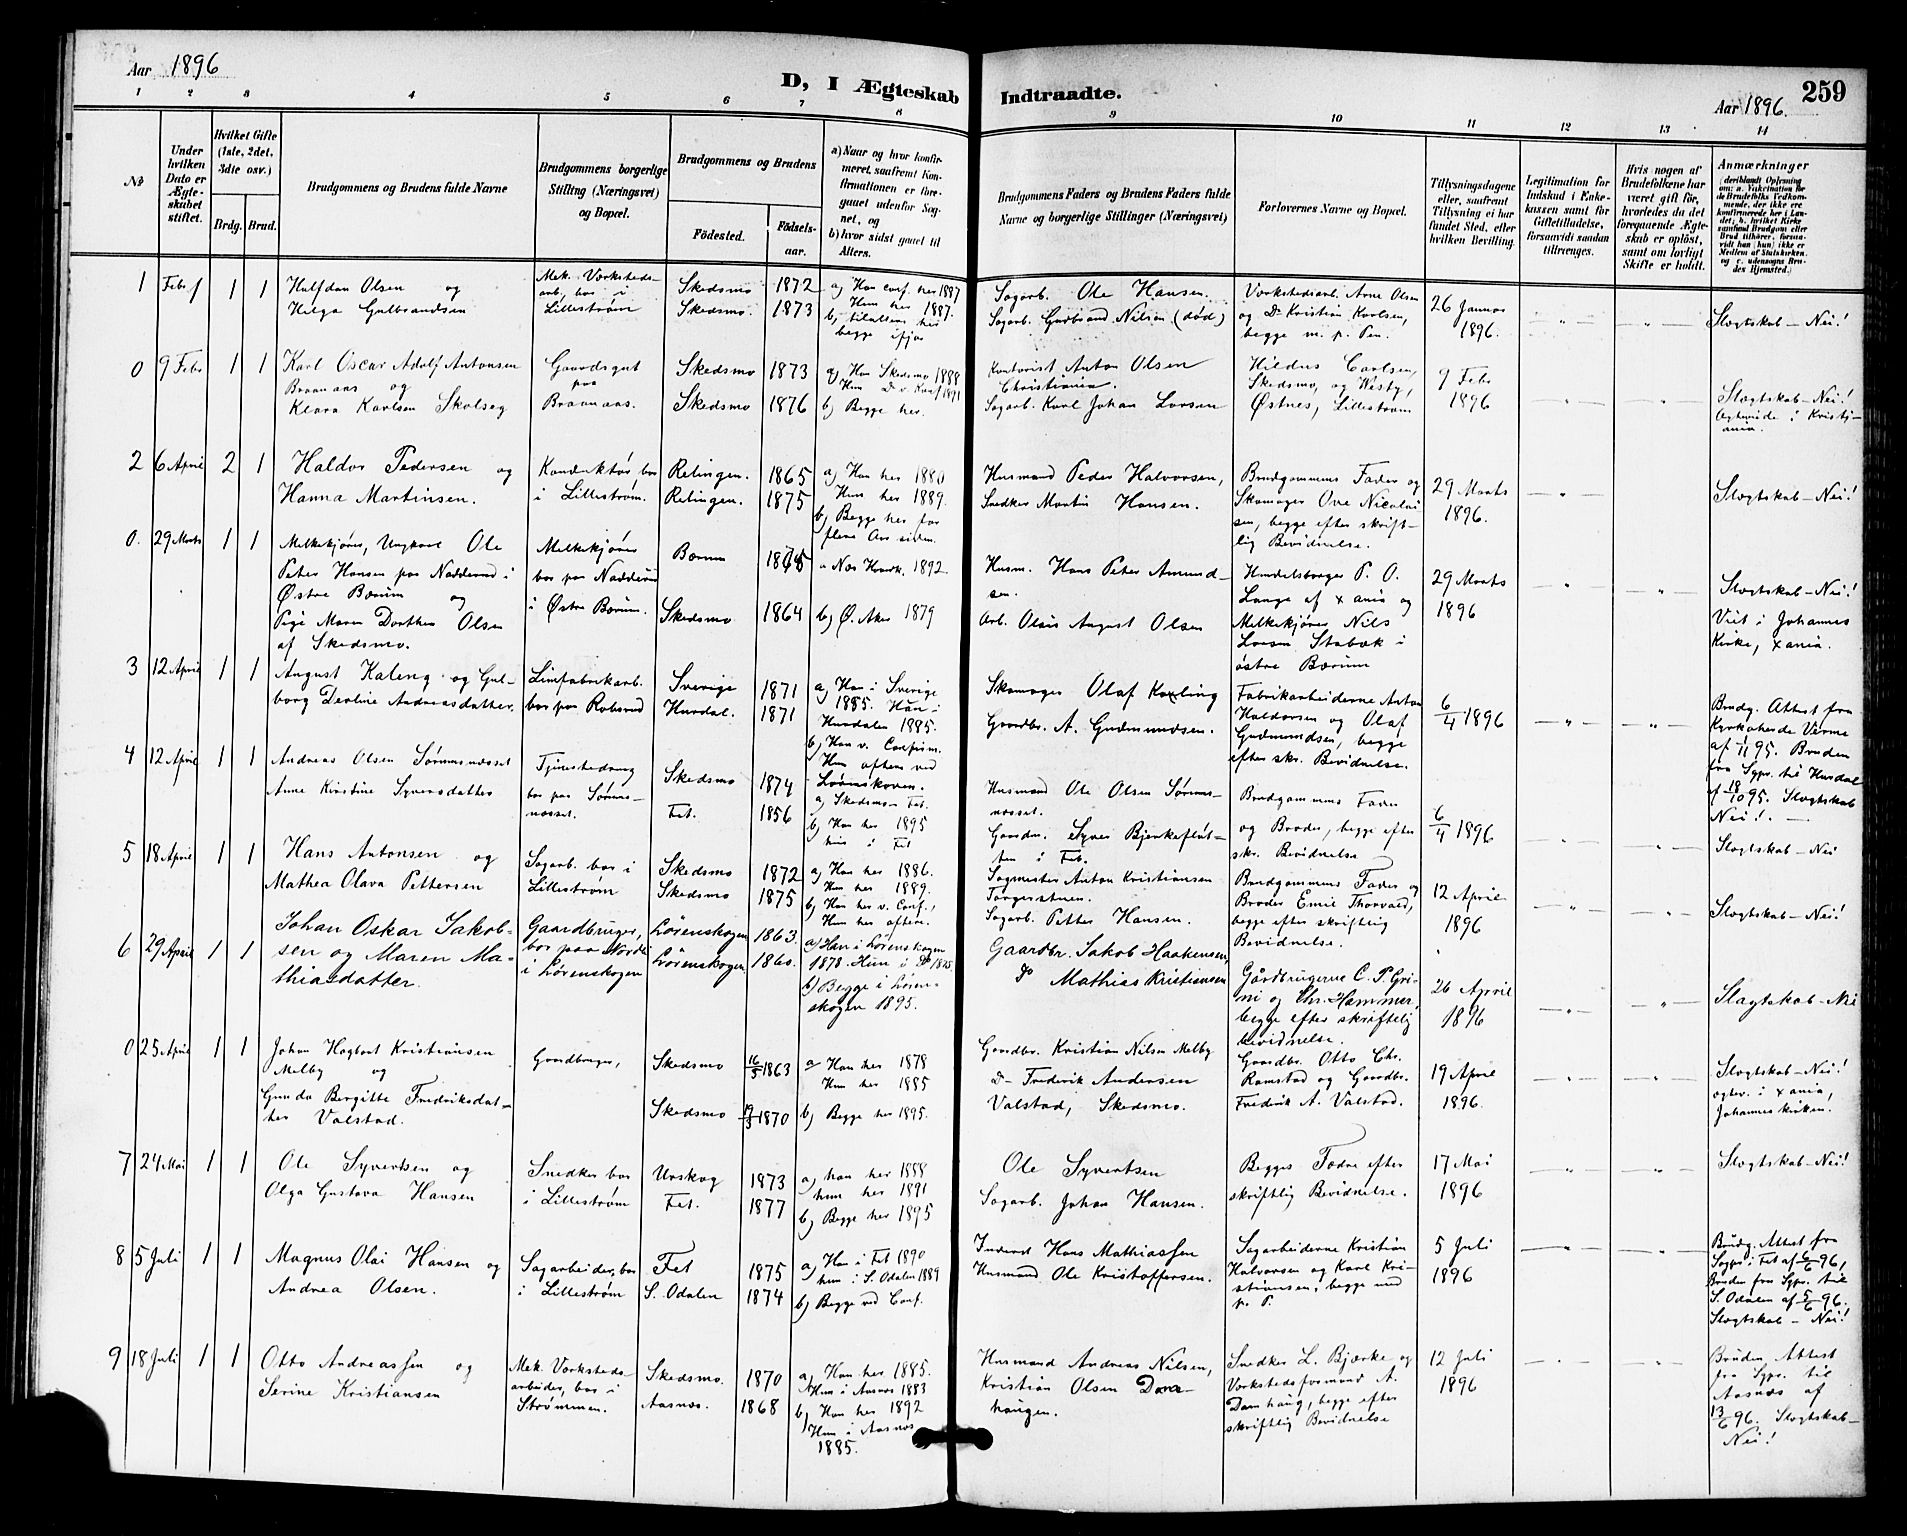 Aar 1896
D, I Ægteskab Indtraadte.
Aar 1896.
259
1 2 3 4 5 6 7 8 9 10 11 12 13 14
No
Under hvilken Dato er Ægteskabet stiftet.
Hvilket Gifte (1ste, 2det, 3die osv.)
Brdg. Brud.
Brudgommens og Brudens fulde Navne
Brudgommens borgerlige Stilling (Næringsvei) og Bopæl.
Brudgommens og Brudens
Födested.
Födselsaar.
a) Naar og hvor konfirmeret, saafremt Konfirmationen er foregaaet udenfor Sognet, og
b) hvor sidst gaaet til Alters.
Brudgommens Faders og Brudens Faders fulde Navne og borgerlige Stillinger (Næringsvei)
Forlovernes Navne og Bopæl.
Tillysningsdagene eller, saafremt Tillysning ei har fundet Sted, efter hvilken Bevilling.
Legitimation for Indskud i Enkekassen samt for Giftetilladelse, forsaavidt saadan tiltrænges.
Hvis nogen af Brudefolkene har været gift för, hvorledes da det foregaaende Ægteskab er oplöst, samt om lovligt Skifte er holdt.
Anmærkninger
(deriblandt Oplysning om: a. Vaksination for de Brudefolks Vedkommende, der ikke ere konfirmerede her i Landet; b. hvilket Kirkesamfund Brudgom eller Brud tilhörer, forsaavidt han (hun) ikke er Medlem af Statskirken, og c. udensogns Brudes Hjemsted.)
1 Febr. 1 1 Halfdan Olsen og
Helga Gulbrandsen
Mek. Værkstedsarb. bor i
Lillestrøm
Skedsmo 1872
Skedsmo. 1873
a) Han conf. her 1887
Hun her 1887.
b, tilaltens her
begge ifjor
Sagarb. Ole Hansen.
Sagarb. Gudbrand Nilsen (död)
Værkstedsarb. Arne Olsen
og Do Kristian Karlsen,
begge m. p. Pen.
26 Januar
1896.
Slægtskab – Nei!
0 9 Febr 1 1 Karl Oscar Adolf Antonsen
Braanaas og
Klara Karlsen Skolseg
Gaardsgut
paa
Braanaas.
Skedsmo 1873
Skedsmo 1876
a) Han Skedsmo 1888
Hun Do v. Konf 1891
b) Begge her.
Kontorist Anton Olsen
Christiania.
Sagarb. Karl Johan Larsen
Hildus Carlsen,
Skedsmo, og Westy,
Østnes, Lillestrøm
9 Febr
1896
Slægtskab – Nei!
Ægteviede i Kristiania.
2 6 April 2 1 Haldor Pedersen og
Hanna Martinsen.
Konduktör bor
i Lilleström.
Relingen. 1865
Relingen. 1875
a) Han her 1880
Hun her 1889.
b) Begge her for
flere Aar siden.
Husmand Peder Halvorsen,
Snedker Martin Hansen.
Brudgommens Fader og
Skomager Ove Nicolaisen, begge efter skriftlig Bevidnelse.
29 Marts
1896.
Slægtskab – Nei!
0. 29 Marts 1 1 Melkekjører, Ungkarl Ole
Peter Hansen paa Nadderud i
Østre Bærum og
Pige Maren Dorthea Olsen
af Skedsmo.
Melkekjører
bor paa Nadderud
i Østre Bærum.
Bærum
Skedsmo 1864
1892.
b) Ø. Aker 1879
Husm. Hans Peter Amundsen.
Arb. Olaus August Olsen
Handelsborger P. O.
Lange af Xania og
Melkekjører Nils
Larsen Stabæk i
østre Bærum
29 Marts
1896
Slægtskab – Nei!
Viet i Johannes
Kirke, Xania.
3 12 April 1 1 August Kaleng og Gulborg Derline Andreasdatter.
Limfabrikarb.
bor paa Robsrud
Sverige 1871
Hurdal. 1871
a) Han i Sverige
1885. Hun i
Hurdalen 1885.
b) Han v. Confirm.
Hun oftere ved
Lørenskoven.
Skomager Olaf Kaxling
Gaardbr. A. Gudmundsen.
Fabrikarbeiderne Anton
Haldorsen og Olaf
Gudmundsen, begge
efter skr. Bevidnelse.
6/4 1896
Brudg. Attest fra
Kyrkoherde
af 1/11 95. Bruden
fra Sgpr. til Hurdal
af 18/10 95. Slægtskab
Nei!. –
4 12 April 1 1 Andreas Olsen Sørumsnæsset
Anne Kirstine Syversdatter
Tjenestedreng
bor paa Sørumsnæsset.
Skedsmo 1874
Fet. 1856
a) Skedsmo – Fet.
b) Han her 1895
hun i Fet
Husmand Ole Olsen Sørumsnæsset.
Gaardm. Syver Bjerkeflötten i Fet.
Brudgommens Fader
og Broder, begge efter
skr. Bevidnelse
6/4 1896
Slægtskab – Nei
5 18 April 1 1 Hans Antonsen og
Mathea Olava Pettersen
Sagarb. bor i
Lilleström
Skedsmo 1872
Skedsmo 1875
a) Han her 1886.
Hun her 1889.
b) Han her v. Conf.,
Hun her oftere.
Sagmester Anton Kristiansen
Torgerstuen.
Sagarb. Petter Hansen.
Brudgommens Fader og
Broder Emil Thorvald,
begge efter skriftlig
Bevidnelse.
12 April
1896
Slægtskab – Nei!
6 29 April 1 1 Johan Oskar Jakobsen og Maren Mathiasdatter.
Gaardbruger,
bor paa Nordli
i Lörenskogen
Lörenskogen 1863.
Lörenskogen 1860.
a) Han i Lörenskogen
1878. Hun i Do 1875.
b) Begge i Lörenskogen 1895.
Gaardbr. Jakob Haakensen,
do Mathias Kristiansen
Gårdbrugerne C. P. Grini og Chr. Hammer,
begge efter skriftelig
bevidnelse.
26 April
1896
Slægtskab – Nei
0 25 April 1 1 Johan Hagbart Kristiansen
Melby og
Gunda Bergitte Fredriksdatter Valstad.
Gaardbruger,
Skedsmo 16/5 1863
Skedsmo 19/3 1870
a Han her 1878
Hun her 1885
b) Begge her 1895.
Gaardbr. Kristian Nilsen Melby
D– Frederik Andersen
Valstad, Skedsmo.
Gaardbr. Otto Chr.
Ramstad og Gaardbr.
Frederik A. Valstad.
19 April
1896.
Slægtskab – Nei!
ægtev. i Xania,
Johanneskirken.
7 24 Mai 1 1 Ole Syvertsen og
Olga Gustava Hansen
Snedker bor
i Lilleström
Urskog 1873
Fet. 1877
a) han her 1888
hun her 1891
b) Begge her 1895
Ole Syvertsen
Sagarb. Johan Hansen.
Begges Fædre efter
skriftlig Bevidnelse.
17 Mai
1896
Slægtskab – Nei!
8 5 Juli 1 1 Magnus Olai Hansen og
Andrea Olsen.
Sagarbeider, bor
i Lilleström
Fet 1875
S. Odalen 1874
a) Han i Fet 1890
hun i S. Odalen 1889
b) Begge ved Conf.
Inderst Hans Mathiassen
Husmand Ole Kristoffersen.
Sagarbeiderne Kristian
Halvorsen og Karl Kristiansen, begge med
p. P.
5 Juli
1896
Brudg. Attest fra
Sogpr. i Fet af 6/6 96,
Bruden fra Sgpr. til
S. Odalen af 5/6 96.
Slægtskab – Nei!
9 18 Juli 1 1 Otto Andreassen og
Serine Kristiansen
Mek. Værkstedsarbeider, bor i
Strømmen.
Skedsmo. 1870
Aasnæs. 1868
a) Han her 1885.
Hun i Aasnæs 1883
b) Han her 1892
Hun i Aasnæs
1885.
Husmand Andreas Nilsen,
Kristian Olsen Damhaugen.
Snedker L. Bjærke og
Værkstedsformand A.
Damhaug, begge efter
skriftlig Bevidnelse
12 Juli
1896
Bruden Attest
fra Sgpr. til
Aasnæs af
13/6 96. Slægtskab –
Nei!